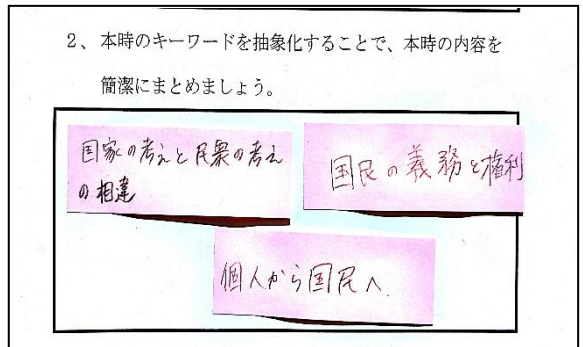 2、本時のキーワードを抽象化することで、本時の内容を
簡潔にまとめましょう。
国家の考えと民衆の考え
の相違
国民の義務と権利
個人から国民へ